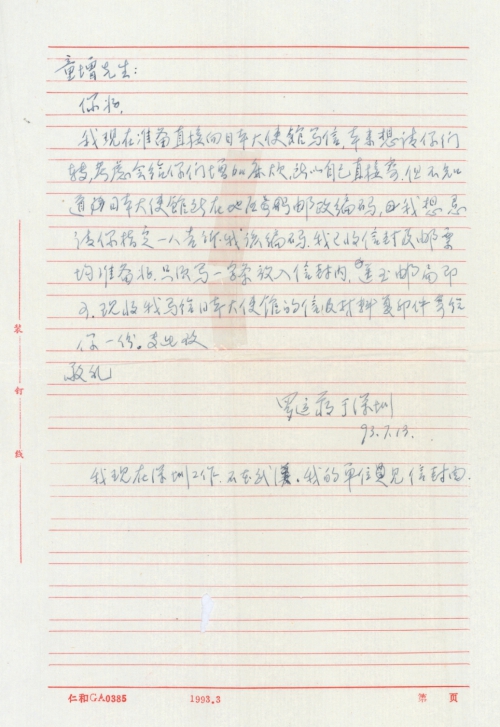 童增先生:
你好,
我现在准备直接向日本大使馆写信,本来想请你们
转,考虑会给你们增加麻烦,所以自己直接寄,但不知
道 日本大使馆所在地 邮政编码,由我想
请你指定一人告诉我 编码,我已 信封及邮票
均准备好,只须写一字条放入信封内, 邮局即
可,现 我写给日本大使馆的信及材料复印件寄给
你一份。 致
敬礼
罗 于深圳
93.7.13.
我现在深圳工作,不在武汉,我的单位 见信封面.
装 订 线
仁和GA0385 1993.3 第 页